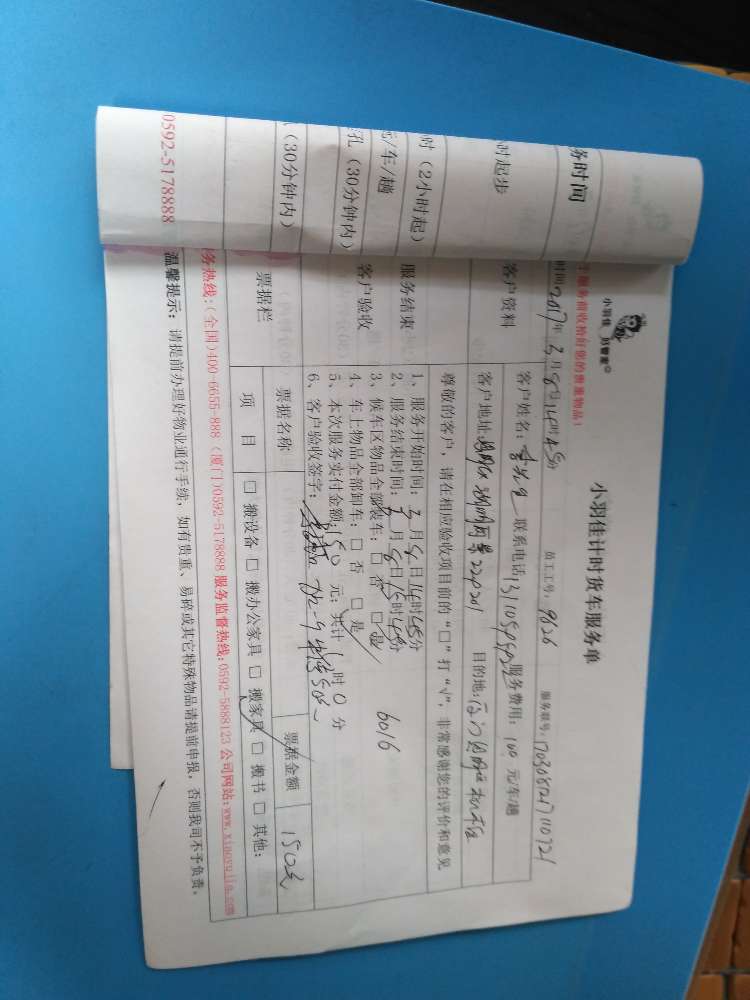 务时间
时起步
时（2小时起）
元/车/趟
孔（30分钟内）
（30分钟内）
0592-5178888
小羽佳 好管家
小羽佳计时货车服务单
服务前收拾好您的贵重物品！
时间2017年3月8日14时45分 员工工号：9626 服务联号：
客户资料
客户姓名： 联系电话 服务费用：100 元/车/趟
客户地址 目的地：
尊敬的客户，请在相应验收项目前的“□”打“√”，非常感谢您的评价和意见
服务结束
客户验收
1、服务开始时间：3月8日14时45分
2、服务结束时间：3月8日15时45分
3、候车区物品全部装车：□ 否 □ 是 6016
4、车上物品全部卸车：□ 否 □ 是
5、本次服务实付金额：150 元；共计 1 时 0 分
6、客户验收签字：
票据栏 票据名称 票据金额 150元
项 目 □ 搬设备 □ 搬办公家具 □ 搬家具 □ 搬书 □ 其他：
务热线：(全国)400-6655-888 (厦门)0592-5178888 服务监督热线：0592-5888123 公司网站：www.xiaoyujia.com
温馨提示：请提前办理好物业通行手续，如有贵重、易碎或其它特殊物品请提前申报，否则我司不予负责。